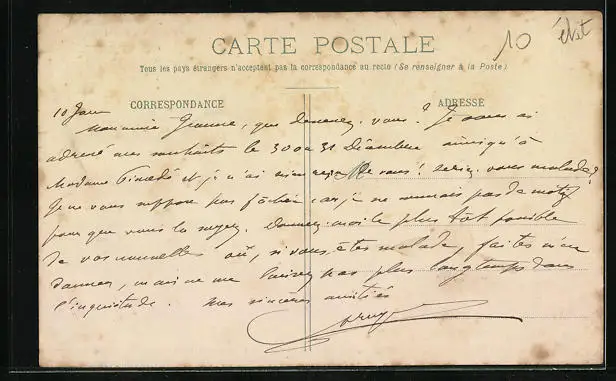 CARTE POSTALE
10
état
Tous les pays étrangers n'acceptent pas la correspondance au recto (Se renseigner à la Poste)
CORRESPONDANCE
ADRESSE
10 Janv
Mon amie Jeanne, que devenez-vous? Je vous ai
adressé mes souhaits le 30 ou 31 Décembre ainsi qu'à
Madame et je n'ai rien reçu de vous! seriez-vous malade?
Je ne vous suppose pas fâchée car je ne connais pas de motif
pour que vous la soyez. Donnez-moi le plus tôt possible
de vos nouvelles ou, si vous êtes malade, faites m'en
donner, mais ne me laissez pas plus longtemps dans
l'inquiétude. Mes sincères amitiés